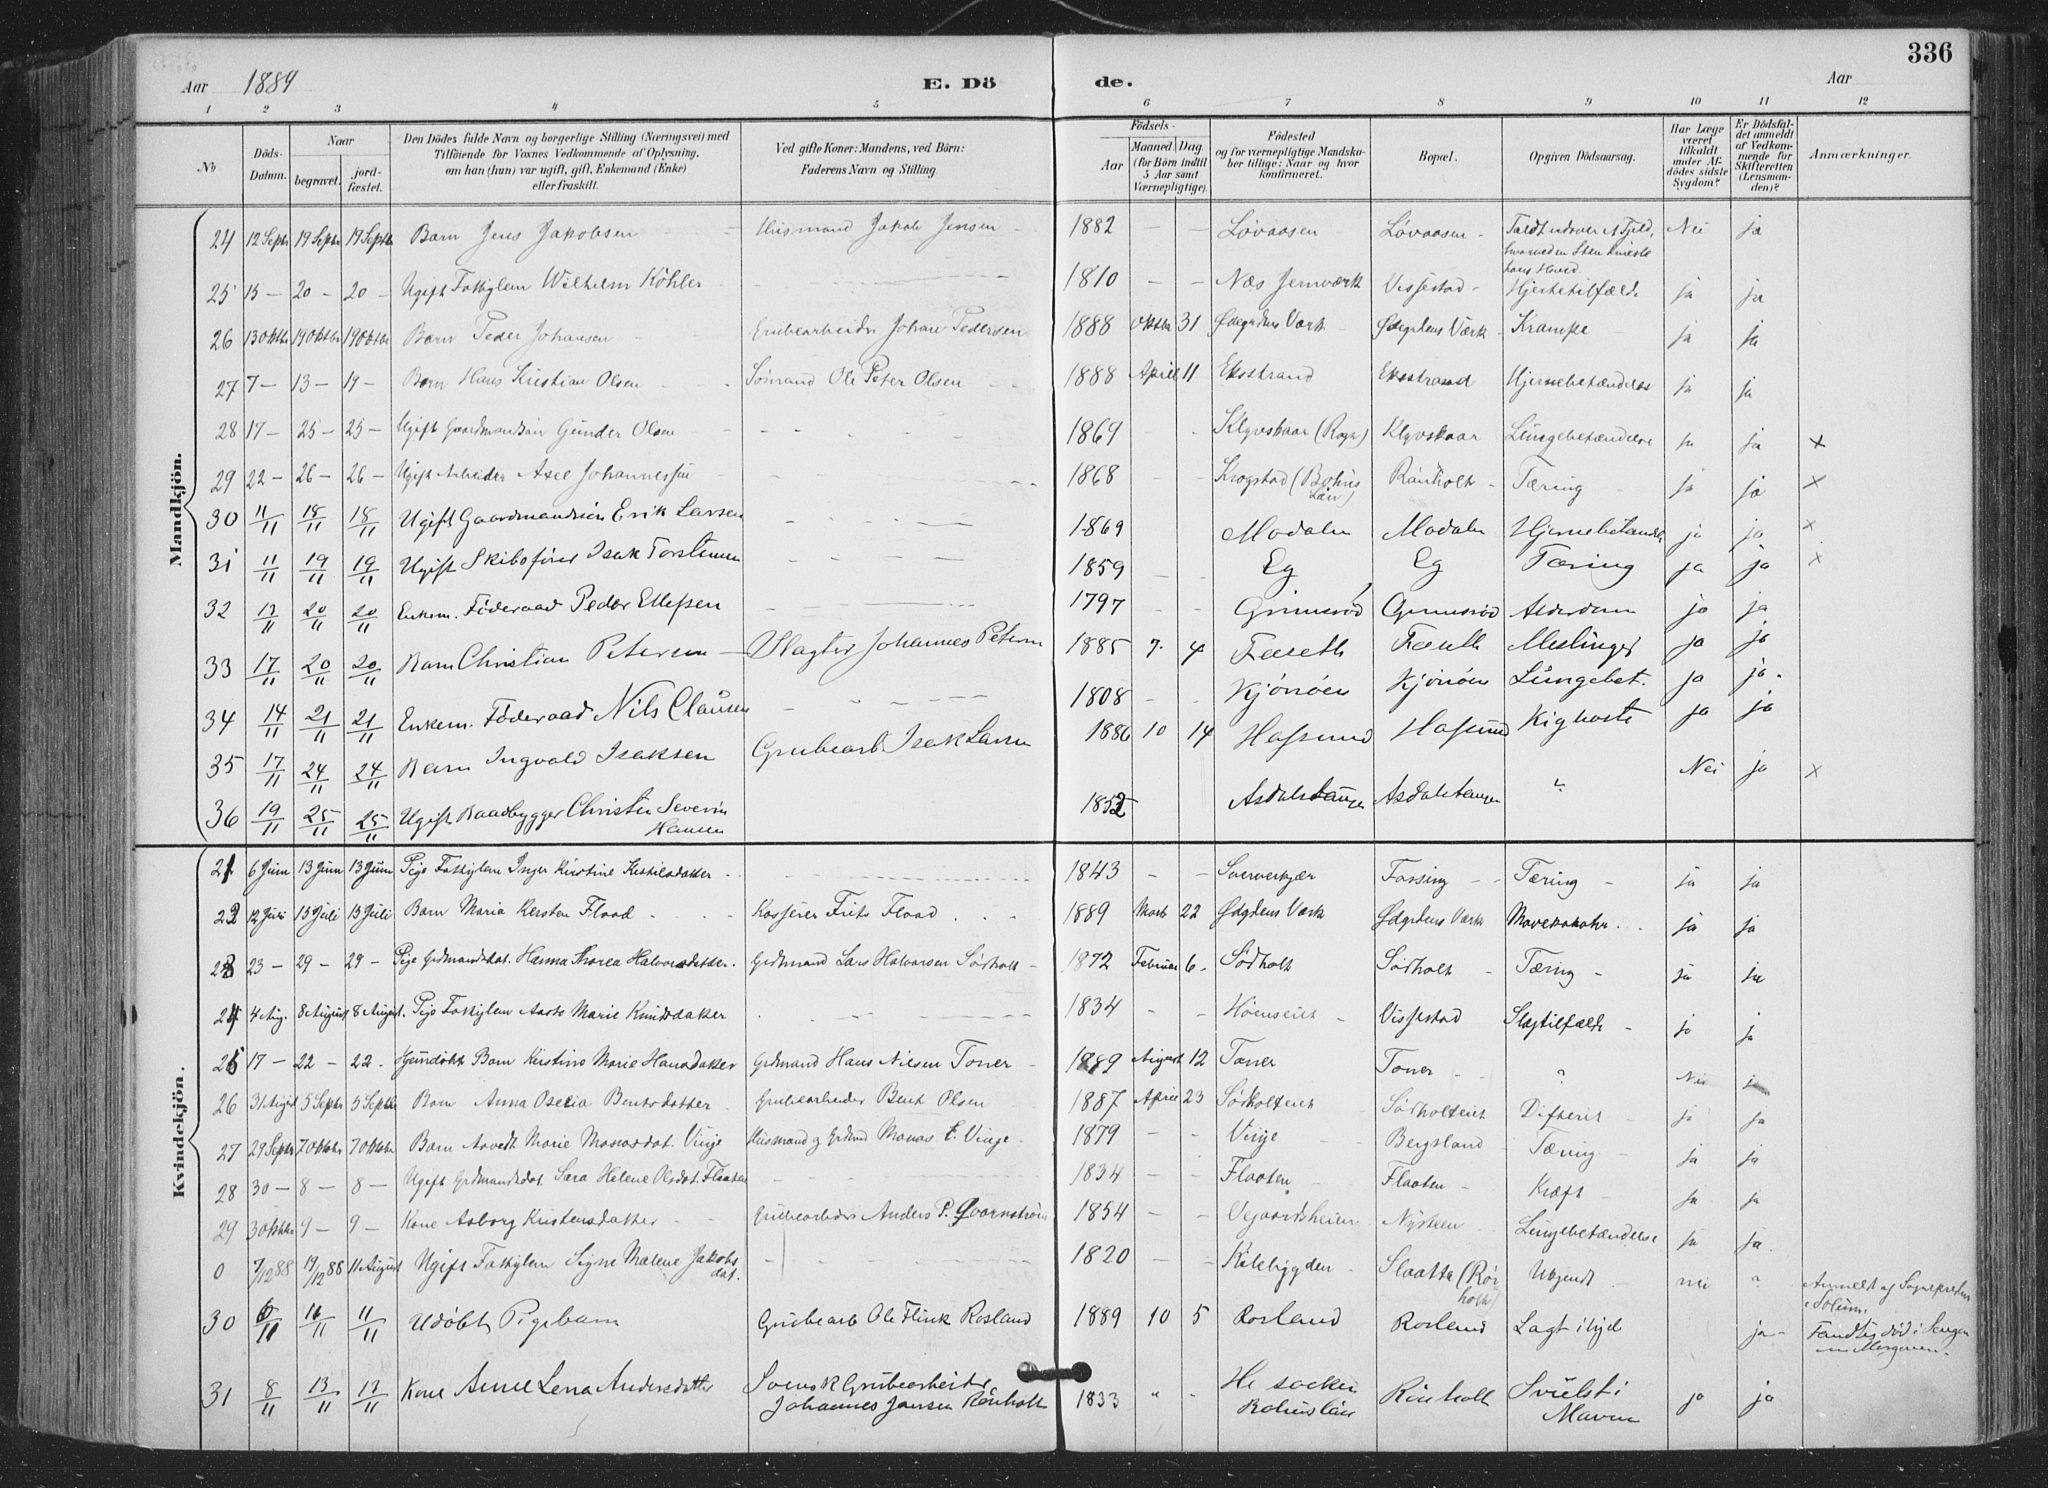 336
Aar 1889 E. Dö de. Aar
1 2 3 4 5 6 7 8 9 10 11 12
No
Döds-Datum.
Naar
begravet.
jord-fæstet.
Den Dödes fulde Navn og borgerlige Stilling (Næringsvei) med
Tilföiende for Voxnes Vedkommende af Oplysning,
om han (hun) var ugift, gift, Enkemand (Enke)
eller fraskilt.
Ved gifte Koner: Mandens, ved Börn:
Faderens Navn og Stilling.
Födsels-
Aar
Maaned. Dag.
(for Börn indtil
5 Aar samt
Værnepligtige).
Födested
og for værnepligtige Mandska-
ber tillige: Naar og hvor
konfirmeret.
Bopæl.
Opgiven Dödsaarsag.
Har Læge
været
tilkaldt
under Af-
dödes sidste
Sygdom?
Er Dödsfal-
det anmeldt
af Vedkom-
mende for
Skifteretten
(Lensman-
den)?
Anmærkninger.
Mandkjön.
24 12 Septr 19 Septr 19 Septr Barn Jens Jakobsen Husmand Jakob Jensen 1882 — — Løvaasen Løvaasen Faldt udover et Fjeld, Nei ja
hvorved en Sten knuste
hans Hoved.
25 15 — 20 — 20 — Ugift Fattiglem Wilhelm Köhler 1810 — — Næs Jernværk Vissestad Hjertetilfælde ja ja
26 13 Oktbr 19 Oktbr 19 Oktbr Barn Peder Johansen Grubearbeider Johan Pedersen 1888 Oktbr 31 Ødegdens Værk Ødegdens Værk Krampe ja ja
27 7 — 13 — 19 — Barn Hans Kristian Olsen Sömand Ole Peter Olsen 1888 April 11 Eksstrand Eksstrand Hjernebetændelse ja ja
28 17 — 25 — 25 — Ugift Gaardmandsön Gunder Olsen 1869 Klyvskaar Klyvskaar Lungebetændelse ja ja ×
29 22 — 26 — 26 — Ugift Arbeider Axel Johannessen 1868 Krogstad (Bohus Län) Rønholt Tæring ja ja ×
30 11/11 18/11 18/11 Ugift Gaardmandsön Erik Larsen 1869 Modalen Modalen Hjernebetændels ja ja ×
31 11/11 19/11 19/11 Ugift Skibsförer Isak Torstensen 1859 Eg Eg Tæring ja ja ×
32 12/11 20/11 20/11 Enkem. Föderaad Peder Ellefsen 1797 Grimsrød Grimsrød Alderdom ja ja
33 17/11 20/11 20/11 Barn Christian Petersen Slagter Johannes Petersen 1885 7. 4 Foseth Foseth Meslinger ja ja
34 14/11 21/11 21/11 Enkem. Föderaad Nils Clausen 1808 Kjönöen Kjönöen Lungebet. ja ja.
35 17/11 24/11 24/11 Barn Ingvald Isaksen Grubearb Isak Larsen 1886 10 14 Hafsund Hafsund Kighoste ja ja
36 19/11 25/11 25/11 Ugift Baadbygger Christen Severin Hansen 1852 Asdalstangen Asdalstangen ? Nei ja ×
Kvindekjön.
21 6 Juni 13 Juni 13 Juni Pige Fattiglem Inger Kirstine Kittilsdatter 1843 — — Sververkjær Fossing Tæring ja ja
22 12 Juli 15 Juli 15 Juli Barn Maria Kersten Flood Kasserer Frits Flood 1889 Marts 22 Ødgdens Værk Ødgdens Værk Mavekatahr ja ja
23 23 — 29 — 29 — Pige Grdmandsdat. Hanna Thorea Halvorsdatter. Grdmand Lars Halvorsen Sörholt 1872 Februar 6 Södholt Södholt Tæring ja ja
24 4 Aug. 8 August 8 August. Pige Fattiglem Aaste Marie Knudsdatter 1834 Høenseiet Vissestad Slagtilfælde ja ja
25 17 — 22 — 22 — Hjemdöbt Barn Kirstine Marie Hansdatter Grdmand Hans Nilsen Toner 1889 August 12 Toner Toner ? Nei ja
26 31 August 5 Septr 5 Septbr Barn Anna Oselia Bentsdatter Grubearbeider Bent Olsen 1887 April 23 Sødholteiet Sødholteiet Difterit ja ja
27 29 Septr 7 Oktbr 7 Oktbr Barn Marie Monasdat. Vinje Husmand og Monas E. Vinje 1879 — — Vinje Bergsland Tæring ja ja
28 30 — 8 — 8 — Ugift Grdmandsdat. Sara Helene Olsdat. Flaaten 1834 — — Flaaten Flaaten Kræft ja ja
29 3 Oktbr 9 — 9 — Kone Asborg Kristensdatter Grubearbeider Anders P. Qvarnström 1854 Vegaardsheien Nysteen Lungebetændelse ja ja.
0 7/12 88 14/12 88 11 August Ugift Fattiglem Signe Malene Jakobsdat. 1820 — — Kilebygden Slaatta (Rørholt) Ukjendt nei ? Anmeldt af Sogneprestens i Solum.
30 6/11 16/11 11/11 Udöbt Pigebarn Grubearb Ole Flink Rosland 1889 10 5 Rosland Rosland Lagt ihjel ja Fandtes död i Sengen om Morgenen.
31 8/11 13/11 13/11 Kone Anne Lena Andersdatter Svensk Grubearbeider 1833 " " Bohuslän Rönholt Svulst i ja ja
Johannes Jansen Rönholt Maven